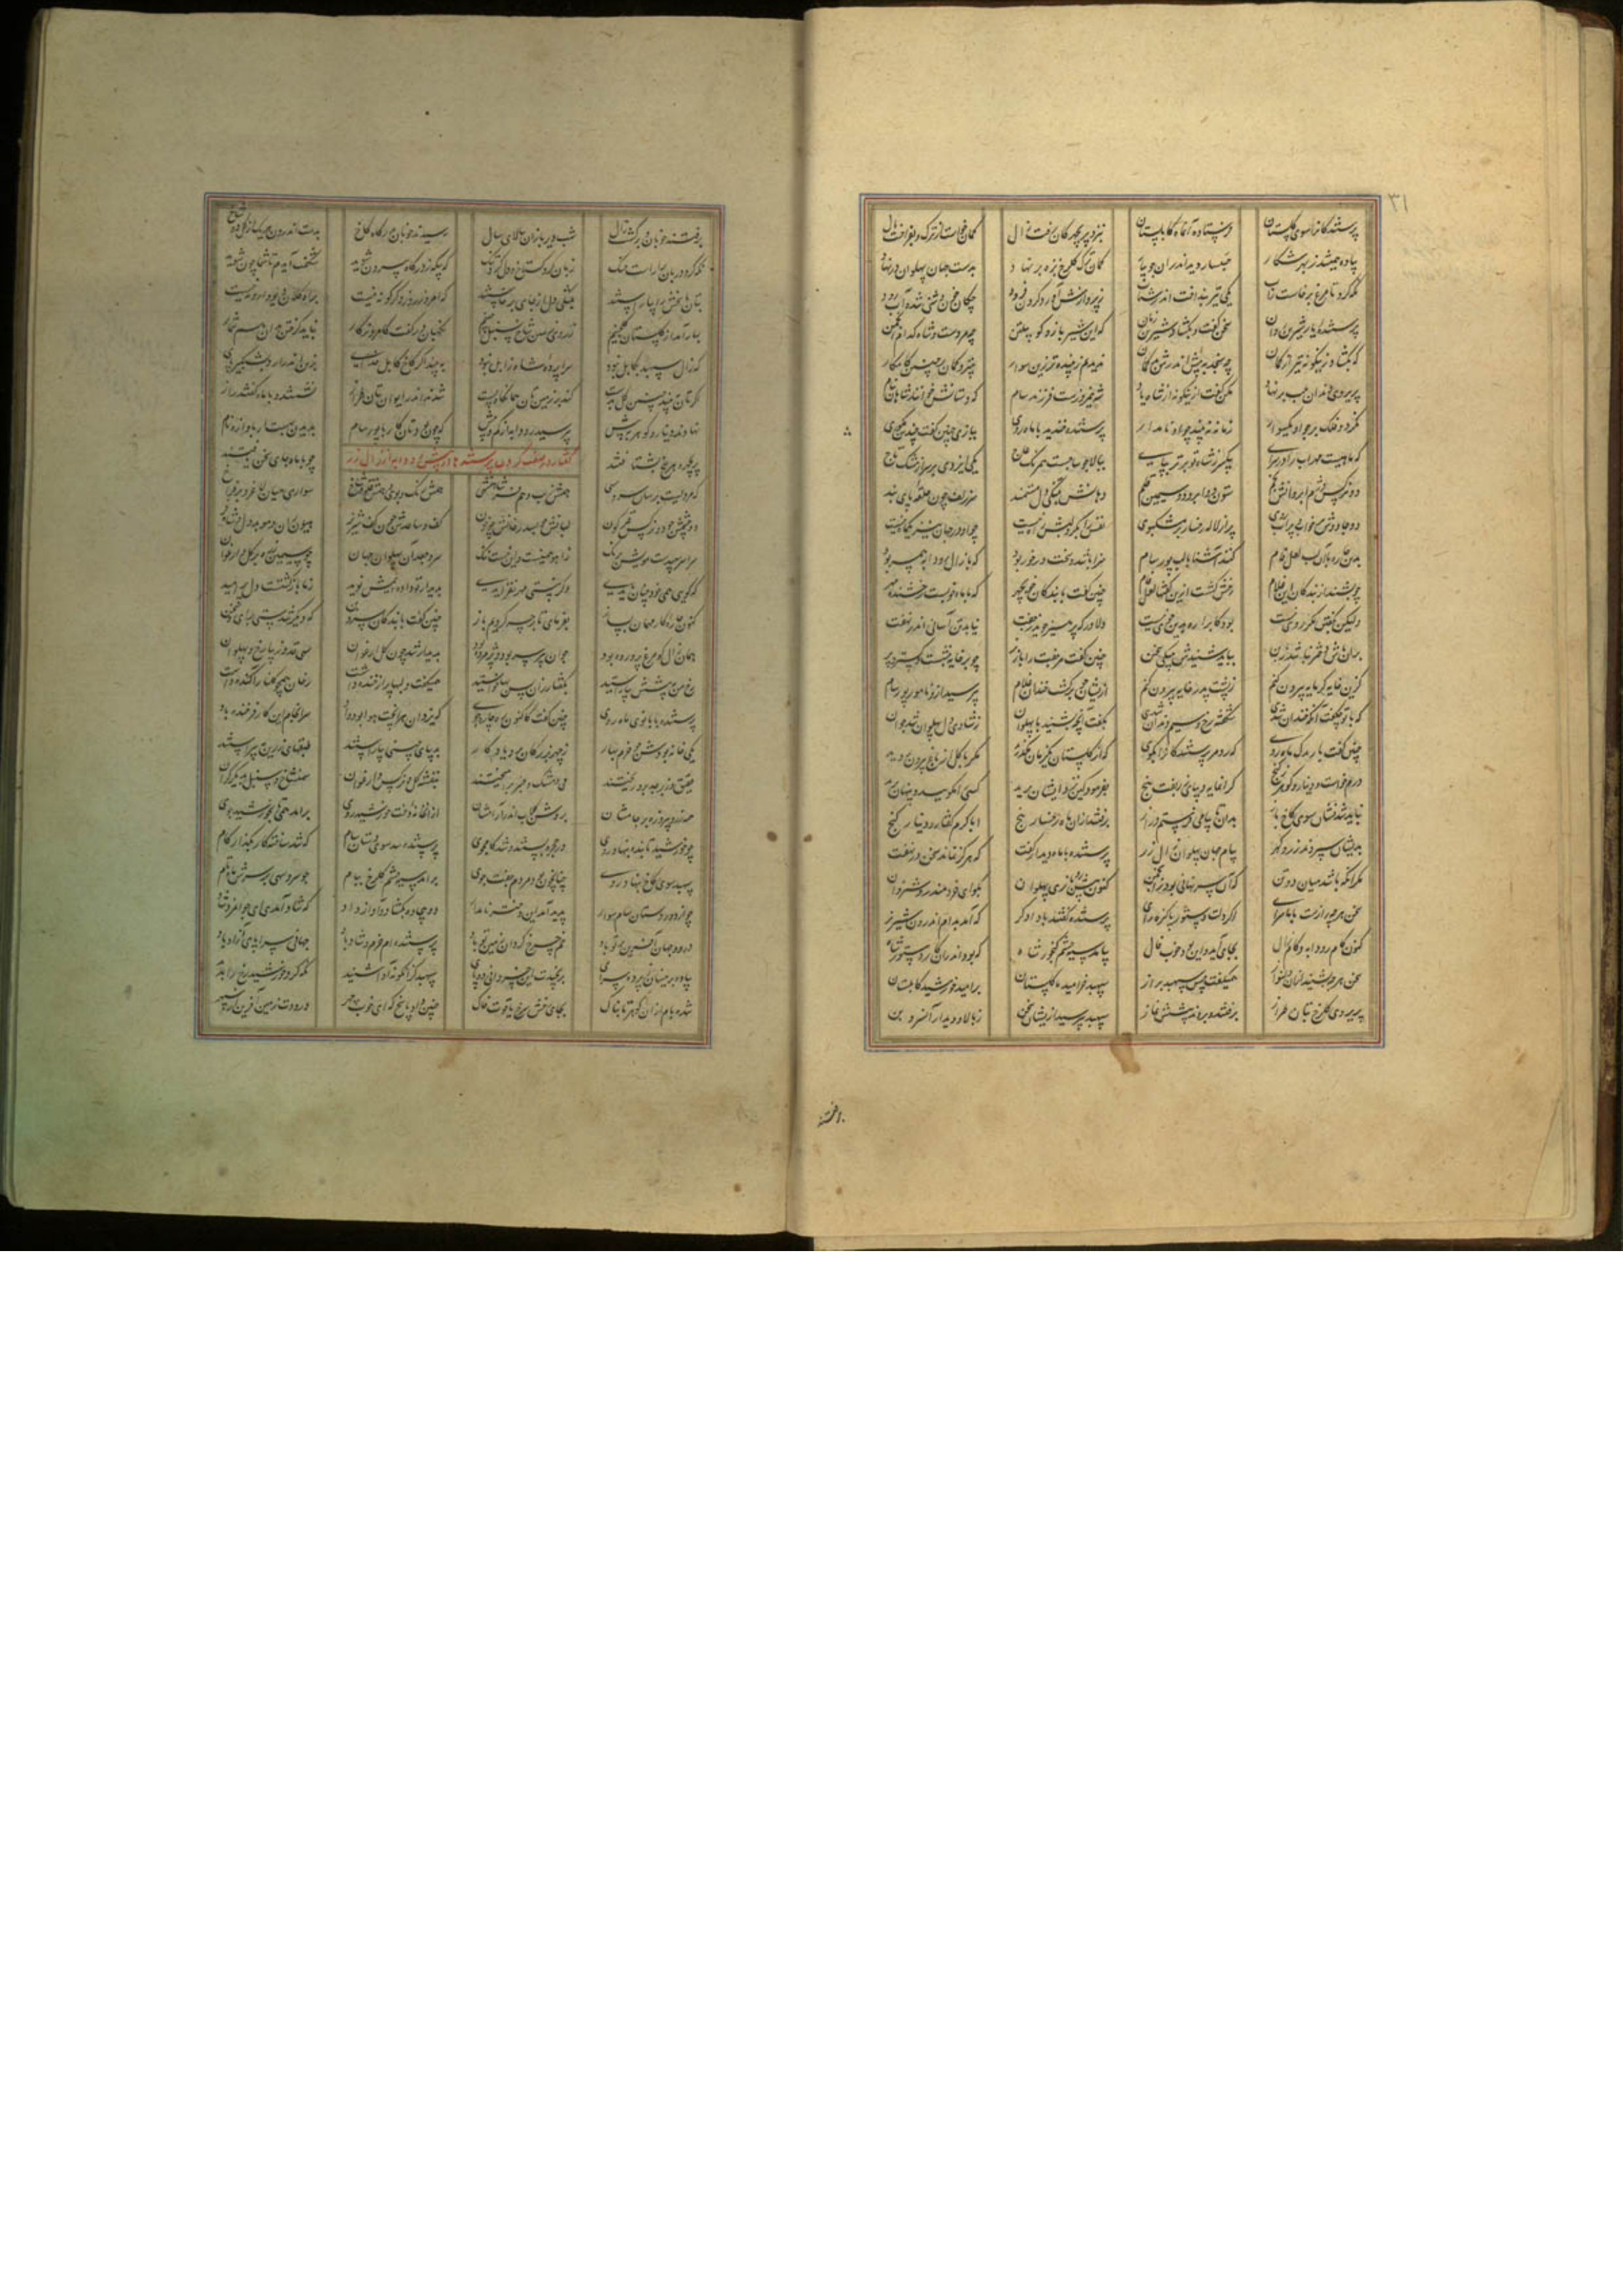 ۳۱
پرستندگانرا سوی گلستان فرستاد آن ماه کابلستان بنزد پریچهرگان رفت زال کمان خواست از ترک و بفراخت یال
پیاده همیشد ز بهر شکار خشنسار دید اندران جویبار کمان ترک گلرخ بزه بر نهاد بدست جهان پهلوان در نهاد
نگه کرد تا مرغ برخاست زآب یکی تیر بنداخت اندر شتاب ز پروازش آورد گردون فرود چکان خون و وشی شده آب رود
پرستنده با یار شیرین روان سخن گفت و بگشاد شیرین زبان که این شیر بازو گو پیلتن چه مردست و شاه کدام انجمن
که بگشاد زینگونه تیر از کمان چه سنجد به پیش اندرش بدگمان ندیدم زیبنده تر زین سوار بتیر و کمان بر چنین کامکار
پریروی دندان بلب بر نهاد مکن گفت ازینگونه از شاه یاد شه نیمروزست فرزند سام که دستانش خوانند شاهان بنام
نگردد فلک بر چو او یک سوار زمانه نه بیند چو او نامدار پرستنده خندید با ماه روی ببازی چنین گفت چندین مگوی
که ماهیست مهراب را در سرای بیک سر ز شاه تو برتر بپای ببالای ساجست و همرنگ عاج یکی ایزدی بر سر از مشک تاج
دو نرگس دژم و ابروان پر ز خم ستون دو ابرو چو سیمین قلم دهانش بتنگی دل مستمند سر زلف چون حلقه پای بند
دو جادوش پر خواب و پر آب روی پر از لاله رخسار و پر مشک موی نفس را مگر بر لبش راه نیست چو او در جهان نیز یک ماه نیست
بدین چاره تا آن لب لعل فام کند آشنا با لب پور سام سزا باشد و سخت در خور بود که با زال رودابه همسر بود
چو بشنید از بندگان این غلام رخش گشت ازین گفتها لعل فام چنین گفت با بندگان خوب چهر که با ماه خوبست رخشنده مهر
ولیکن بگفتن مگر روی نیست بود کابرا ره بدین جوی نیست دلاور که پرهیز جوید ز جفت نیابد بتن آسانی اندر نهفت
بدان تاش دختر نباشد ز بن بباید شنیدنش ننگی سخن چنین گفت مر جفت را باز نر چو بر خایه بنشست و گسترد پر
کزین خایه گر مایه بیرون کنم ز پشت پدر خایه بیرون کنم ازیشان چو برگشت خندان غلام بپرسید ازو نامور پور سام
که با تو چگفت آنکه خندان شدی شگفته رخ و سیم دندان شدی بگفت آنچ بشنید با پهلوان ز شادی دل پهلوان شد جوان
چنین گفت با ریدک ماه روی که رو مر پرستندگانرا بگوی که از گلستان یکزمان مگذرید مگر با گل از باغ بیرون برید
درم خواست و دینار و گوهر ز گنج گرانمایه دیبای زربفت پنج بفرمود کین نزد ایشان برید کسی را مگویید و پنهان برید
نباید شدنشان سوی کاخ باز بدان تا پیامی فرستم دراز برفتند زان ماه رخسار پنج ابا گرم گفتار و دینار و گنج
بدیشان سپردند زر و گهر پیام جهان پهلوان زال زر پرستنده با ماه دیدار گفت که هرگز نماند سخن در نهفت
مگر آنکه باشد میان دو تن بگو ای خردمند روشن روان
سخن هر چه رازست با ما سرای پرستنده گفتند با یکدگر که آمد بدام اندرون شیر نر
کنون کام رودابه و کام زال بجای آمد و این بود خوب فال بیامد سیه چشم گنجور شاه که بود اندران کار دستور شاه
سخن هر چه بشنید ازان دلنواز همیگفت پیش سپهبد براز سپهبد خرامید تا گلستان بر امید خورشید کابلستان
پریروی گلرخ بتان طراز برفتند و بردند پیشش نماز سپهبد بپرسید ازیشان سخن ز بالا و دیدار آن سرو بن
برفتند خوبان و برگشت زال شب دیر یازان ببالای سال رسیدند خوبان بدرگاه کاخ بدست اندرون هر یک از گل دو شاخ
نگه کرد دربان بیاراست جنگ زبان کرد گستاخ و دل کرد تنگ که بیگه ز درگاه بیرون شوید شگفت آیدم تا شما چون شوید
بتان پاسخش را بیاراستند بتنگی دل از جای برخاستند که امروز روز دگرگونه نیست براه گلان دیو وارونه نیست
بهار آمد از گلستان گل چنیم ز روی زمین شاخ سنبل چنیم نگهبان در گفت کامروز کار نباید گرفتن بدان هم شمار
که زال سپهبد بکابل نبود سراپرده شاه زابل نبود نبینید کز کاخ کابل خدای بزین اندر آرد بشبگیر پای
گرتان ببیند چنین گل بدست کند بر زمین تان همانگاه پست شدند اندر ایوان بتان طراز نشستند و با ماه گفتند راز
نهادند دینار و گوهر به پیش بپرسید رودابه از کم و بیش که چون بودتان کار با پور سام بدیدن بهست ار بآواز و نام
پریچهره هر پنج بشتافتند چو با ماه جای سخن یافتند
گفتار در صفت کردن پرستندها در پیش رودابه از زال زر
که مردیست برسان سرو سهی همش زیب و هم فر شاهنشهی همش رنگ و بوی و همش قد و شاخ سواری میان لاغر و بر فراخ
دو چشمش چو دو نرگس قیرگون لبانش چو بسد رخانش چو خون کف و ساعدش چون کف شیر نر هیون ران و موبد دل و شاه فر
سراسر سپیدست مویش برنگ از آهو همینست و این نیست ننگ سر جعد آن پهلوان جهان چو سیمین زره بر گل ارغوان
که گویی همی خود چنان بایدی وگر نیستی مهر نفزایدی بدیدار تو داده ایمش نوید ز ما بازگشتست دل پر امید
کنون چاره کار مهمان بساز بفرمای تا بر چه گردیم باز چنین گفت با بندگان سرو بن که دیگر شدستی برای و سخن
همان زال کو مرغ پرورده بود چنان پیر سر بود و پژمرده بود بدیدار شد چون گل ارغوان سهی قد و زیبا رخ و پهلوان
رخ من به پیشش بیاراستید بگفتار زان پس بها خواستید همیگفت و لب را پر از خنده داشت رخان همچو گلنار آگنده داشت
پرستنده با بانوی ماه روی چنین گفت کاکنون ره چاره جوی که یزدان هر آنچت هوا بود داد سرانجام این کار فرخنده باد
یکی خانه بودش چو خرم بهار ز چهر بزرگان برو بر نگار بدیبای چینی بیاراستند طبقهای زرین بپیراستند
عقیق و زبرجد برو ریختند می و مشک و عنبر برآمیختند بنفشه گل و نرگس و ارغوان سمن شاخ و سنبل بدیگر کران
همه زر و پیروزه بد جامشان بروشن گلاب اندر آرامشان ازان خانه دخت خورشید روی برآمد همی تا بخورشید بوی
چو خورشید تابنده پرستنده شد سوی دستان سام که شد ساخته کار بگذار گام
سپهبد سوی کاخ بنهاد روی چنان چون بود مردم جفت جوی برآمد سیه چشم گلرخ ببام چو سرو سهی بر سرش ماه تام
چو از دور دستان سام سوار پدید آمد این دختر نامدار دو بیجاده بگشاد و آواز داد که شاد آمدی ای جوانمرد شاد
درود جهان آفرین بر تو باد خم چرخ گردان زمین تو باد پرستنده ام خرم و شاد باد
پیاده بدینسان ز پرده سرای برنجیدت این خسروانی دو پای سپهبد کزانگونه آوا شنید نگه کرد و خورشید رخ را بدید
شده بام ازان گوهر تابناک بجای سرخ یاقوت خاک چنین داد پاسخ که ای خوب چهر درودت ز من آفرین از سپهر